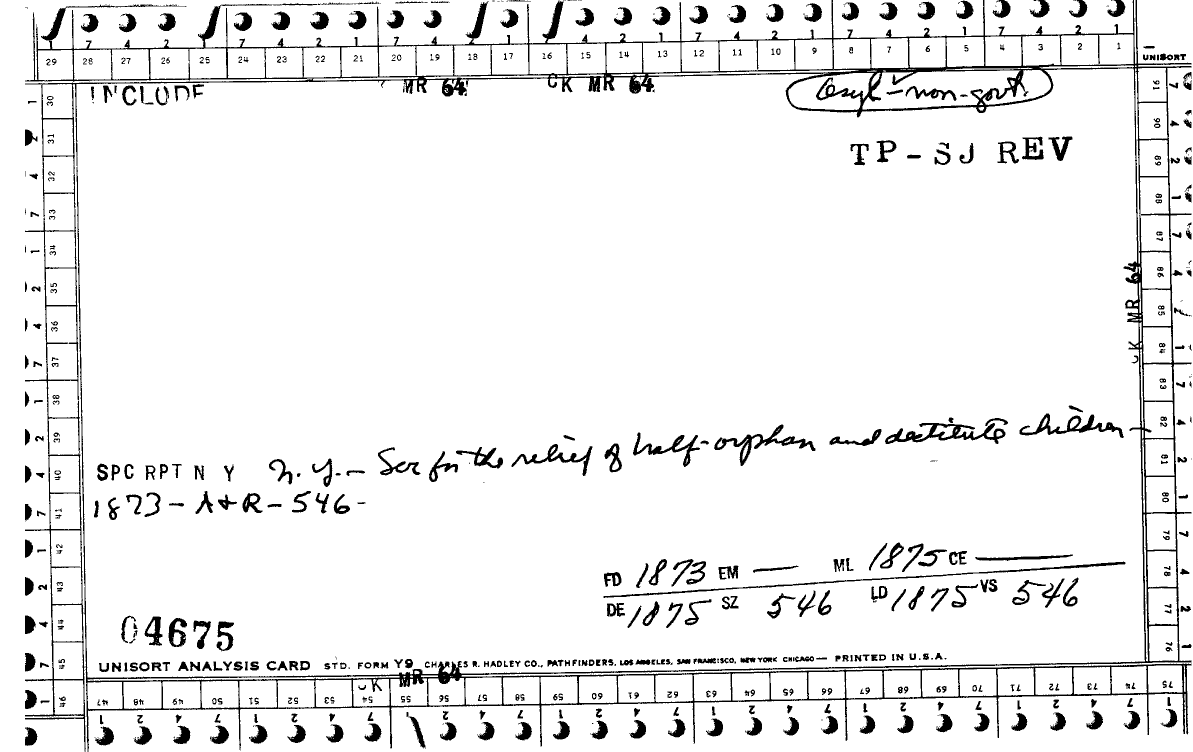 7 4 2 1 7 4 2 1 7 4 2 1 7 4 2 1 7 4 2 1 7 4 2 1
29 28 27 26 25 24 23 22 21 20 19 18 17 16 15 14 13 12 11 10 9 8 7 6 5 4 3 2 1
UNISORT
INCLUDE MR 64 CK MR 64 non-govt.
TP-SJ REV
CK MR 64
SPC RPT N Y N.Y. — Soc for the relief of half-orphan and destitute children —
1873 - A & R - 546 -
FD 1873 EM — ML 1875 CE —
DE 1875 SZ 546 LD 1875 VS 546
04675
UNISORT ANALYSIS CARD STD. FORM Y9 CHARLES R. HADLEY CO., PATHFINDERS, LOS ANGELES, SAN FRANCISCO, NEW YORK CHICAGO — PRINTED IN U.S.A.
CK MR 64
47 48 49 50 51 52 53 54 55 56 57 58 59 60 61 62 63 64 65 66 67 68 69 70 71 72 73 74 75
30 31 32 33 34 35 36 37 38 39 40 41 42 43 44 45 46
91 90 89 88 87 86 85 84 83 82 81 80 79 78 77 76